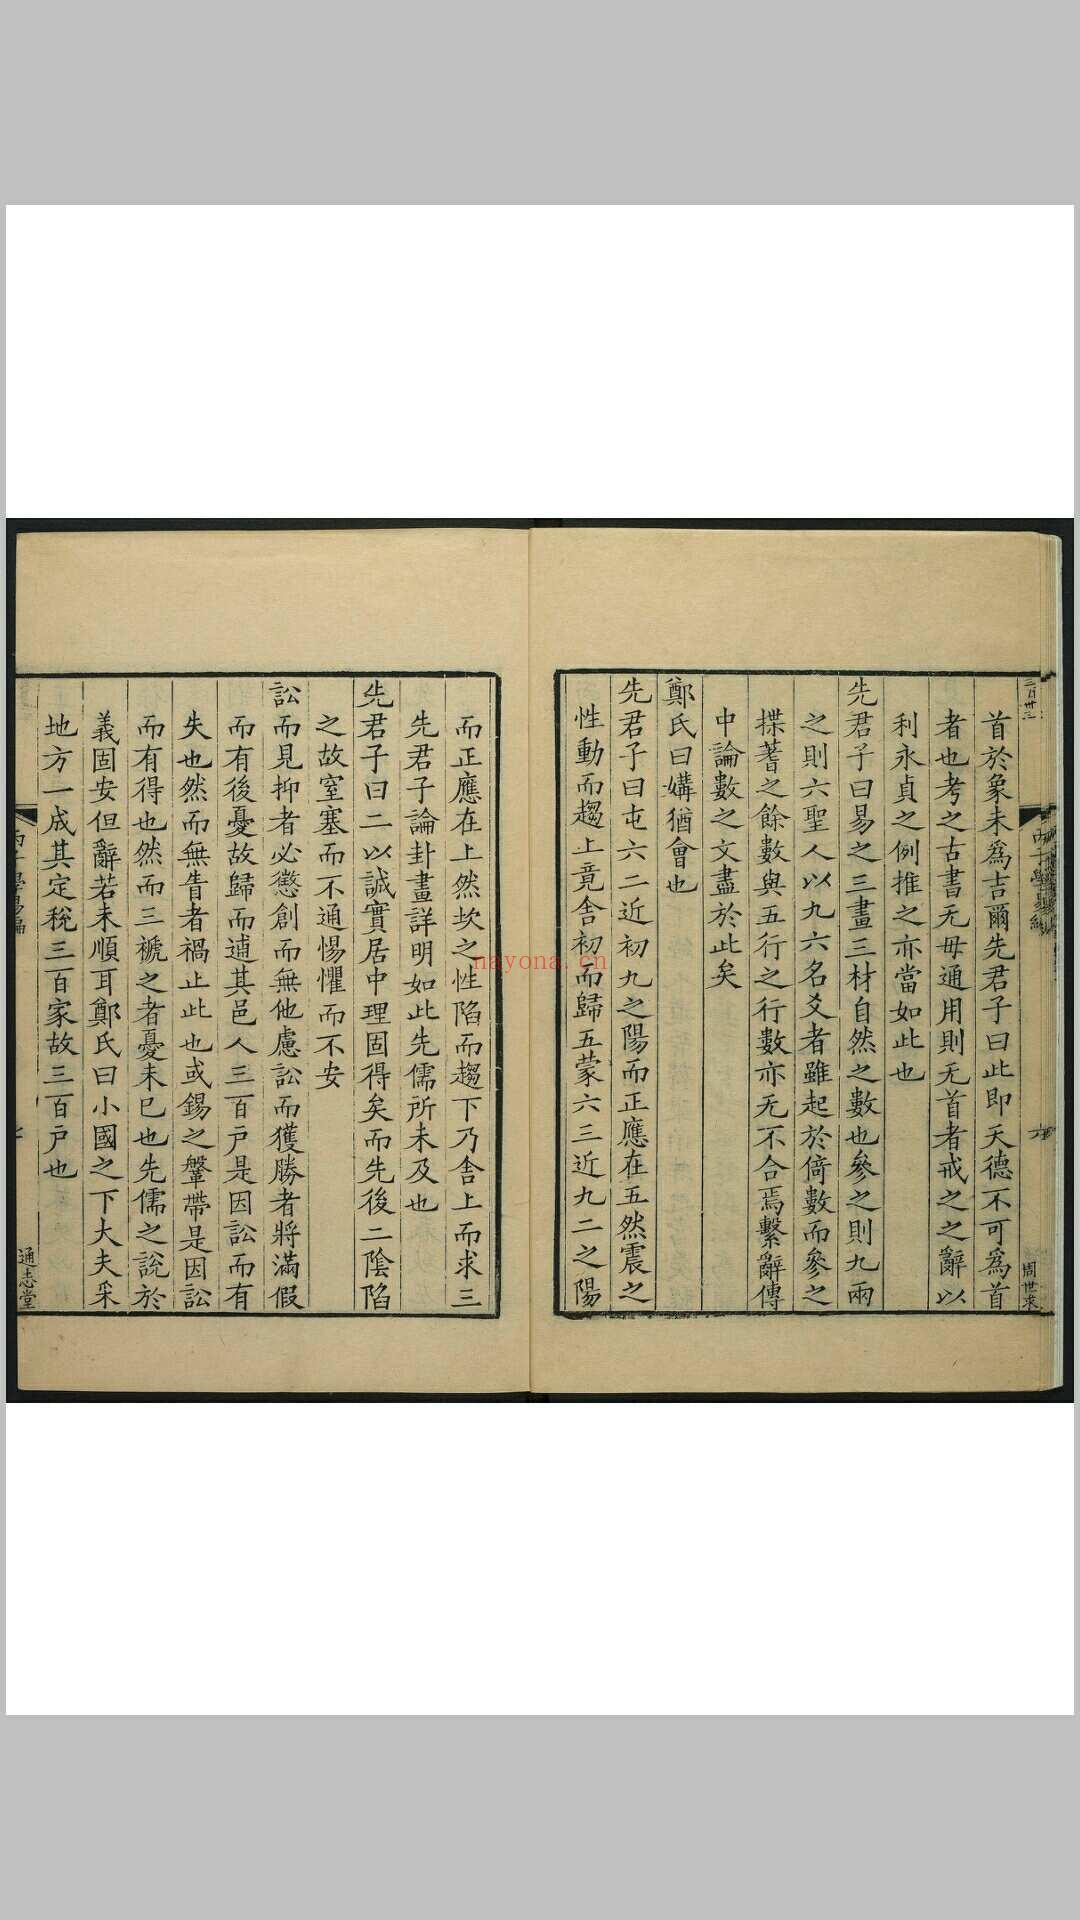 三百卅三
周世求
首於象未為吉爾先君子曰此即天德不可為首
者也考之古書无毋通用則无首者戒之之辭以
利永貞之例推之亦當如此也
先君子曰易之三畫三材自然之數也參之則九兩
之則六聖人以九六名爻者雖起於倚數而參之
揲蓍之餘數與五行之行數亦无不合焉繫辭傳
中論數之文盡於此矣
鄭氏曰媾猶會也
先君子曰屯六二近初九之陽而正應在五然震之
性動而趨上竟舍初而歸五蒙六三近九二之陽
而正應在上然坎之性陷而趨下乃舍上而求三
先君子論卦畫詳明如此先儒所未及也
先君子曰二以誠實居中理固得矣而先後二陰陷
之故窒塞而不通惕懼而不安
訟而見抑者必懲創而無他慮訟而獲勝者將滿假
而有後憂故歸而逋其邑人三百戶是因訟而有
失也然而無眚者禍止此也或錫之鞶帶是因訟
而有得也然而三褫之者憂未已也先儒之說於
義固安但辭若未順耳鄭氏曰小國之下大夫采
地方一成其定稅三百家故三百戶也
通志堂
nayona.cn